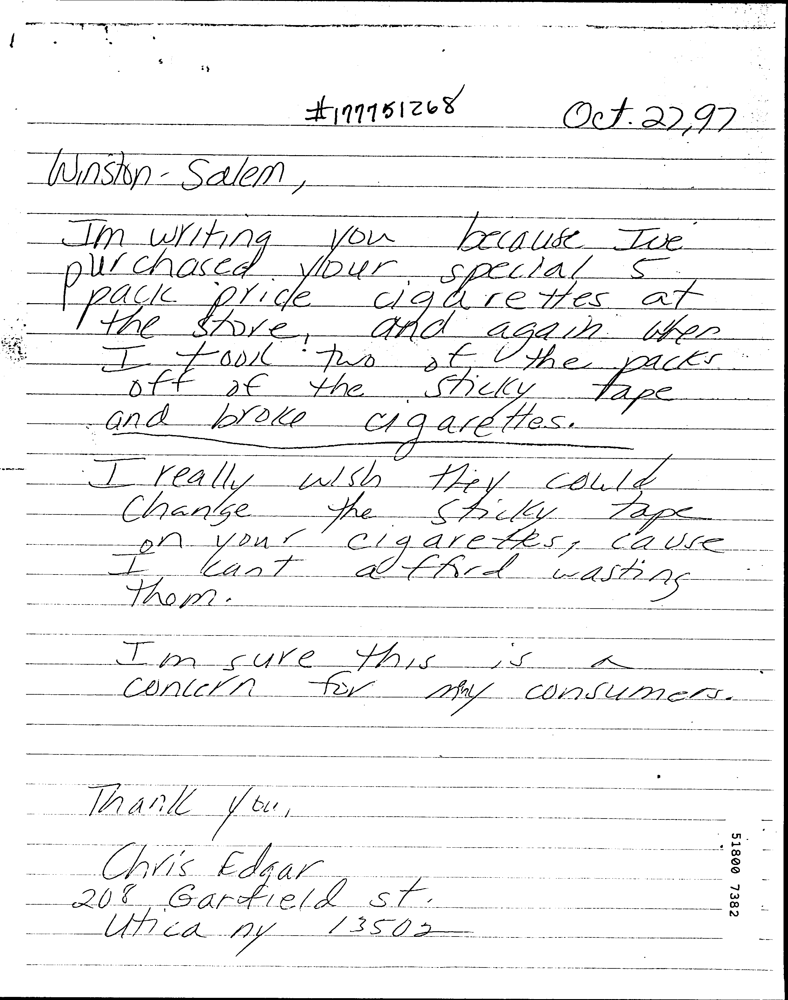 #177751268 Oct. 27,97
Winston-Salem,
Im writing you because Ive
purchased your special 5
pack pride cigarettes at
the store, and again when
I took two of the packs
off of the sticky tape
and broke cigarettes.
I really wish they could
change the sticky tape
on your cigarettes, cause
I cant afford wasting
them.
Im sure this is a
concern for many consumers.
Thank you,
Chris Edgar
208 Garfield st.
Utica ny 13502
51800 7382